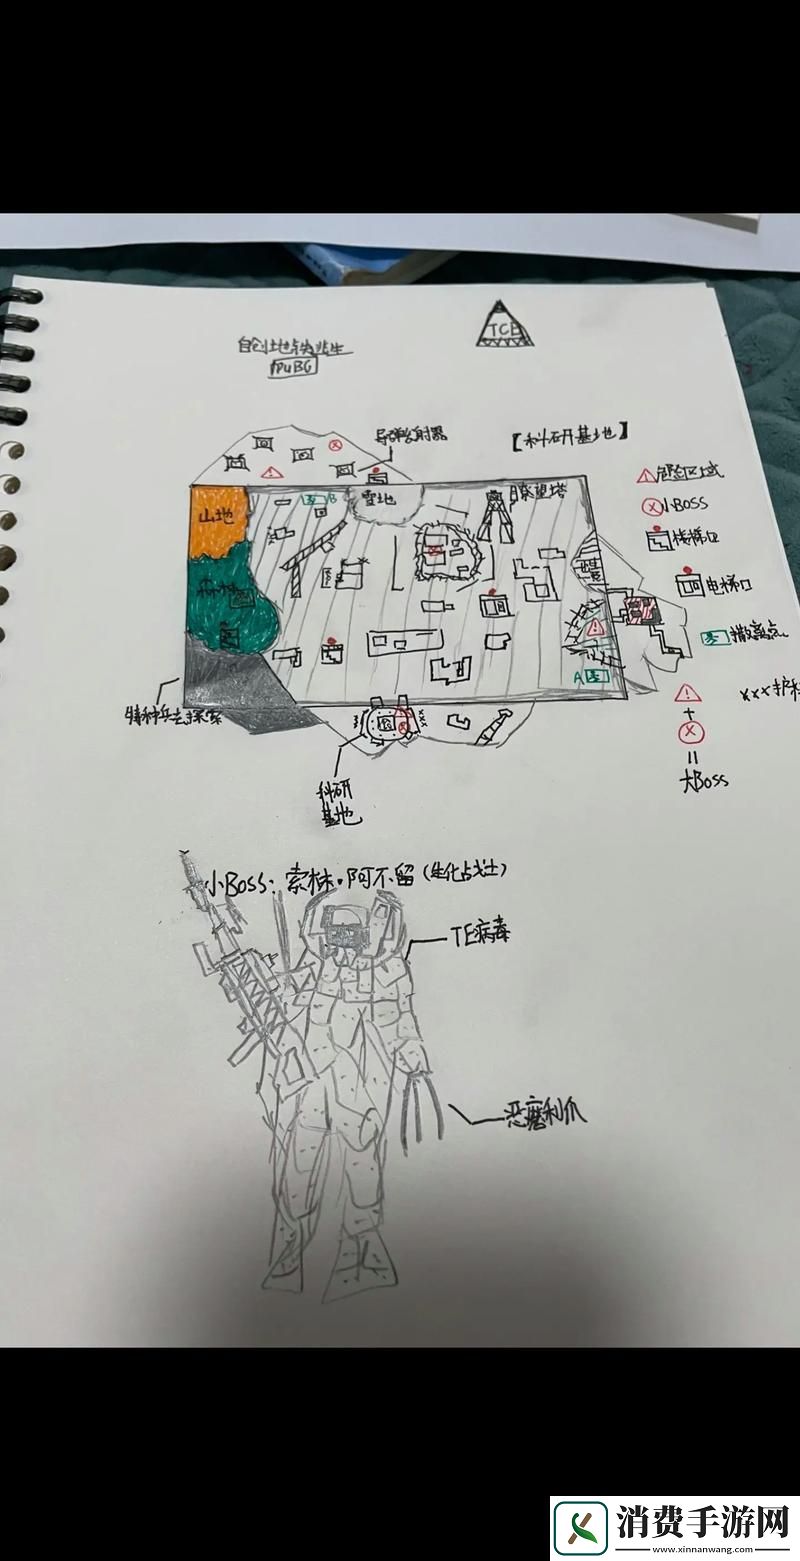 自创地铁逃生
PUBG
TCE
导弹发射器
【科研基地】
山地
雪地
瞭望塔
B
森林
A
特种兵去探索
科研
基地
危险区域
小BOSS
楼梯口
电梯口
撤离点
xxx护栏
+
=
大BOSS
小BOSS：索林·阿不留（生化战士）
TE病毒
恶魔利爪
消费手游网
www.xinnanwang.com